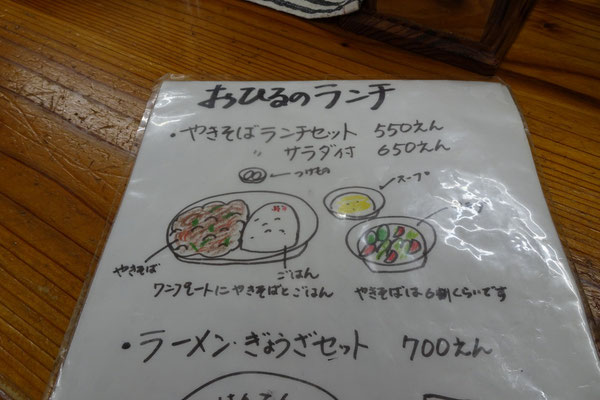 おひるのランチ
・やきそばランチセット 550えん
〃 サラダ付 650えん
つけもの
スープ
やきそば
ごはん
ワンプレートにやきそばとごはん
やきそばは6割くらいです
・ラーメン・ぎょうざセット 700えん